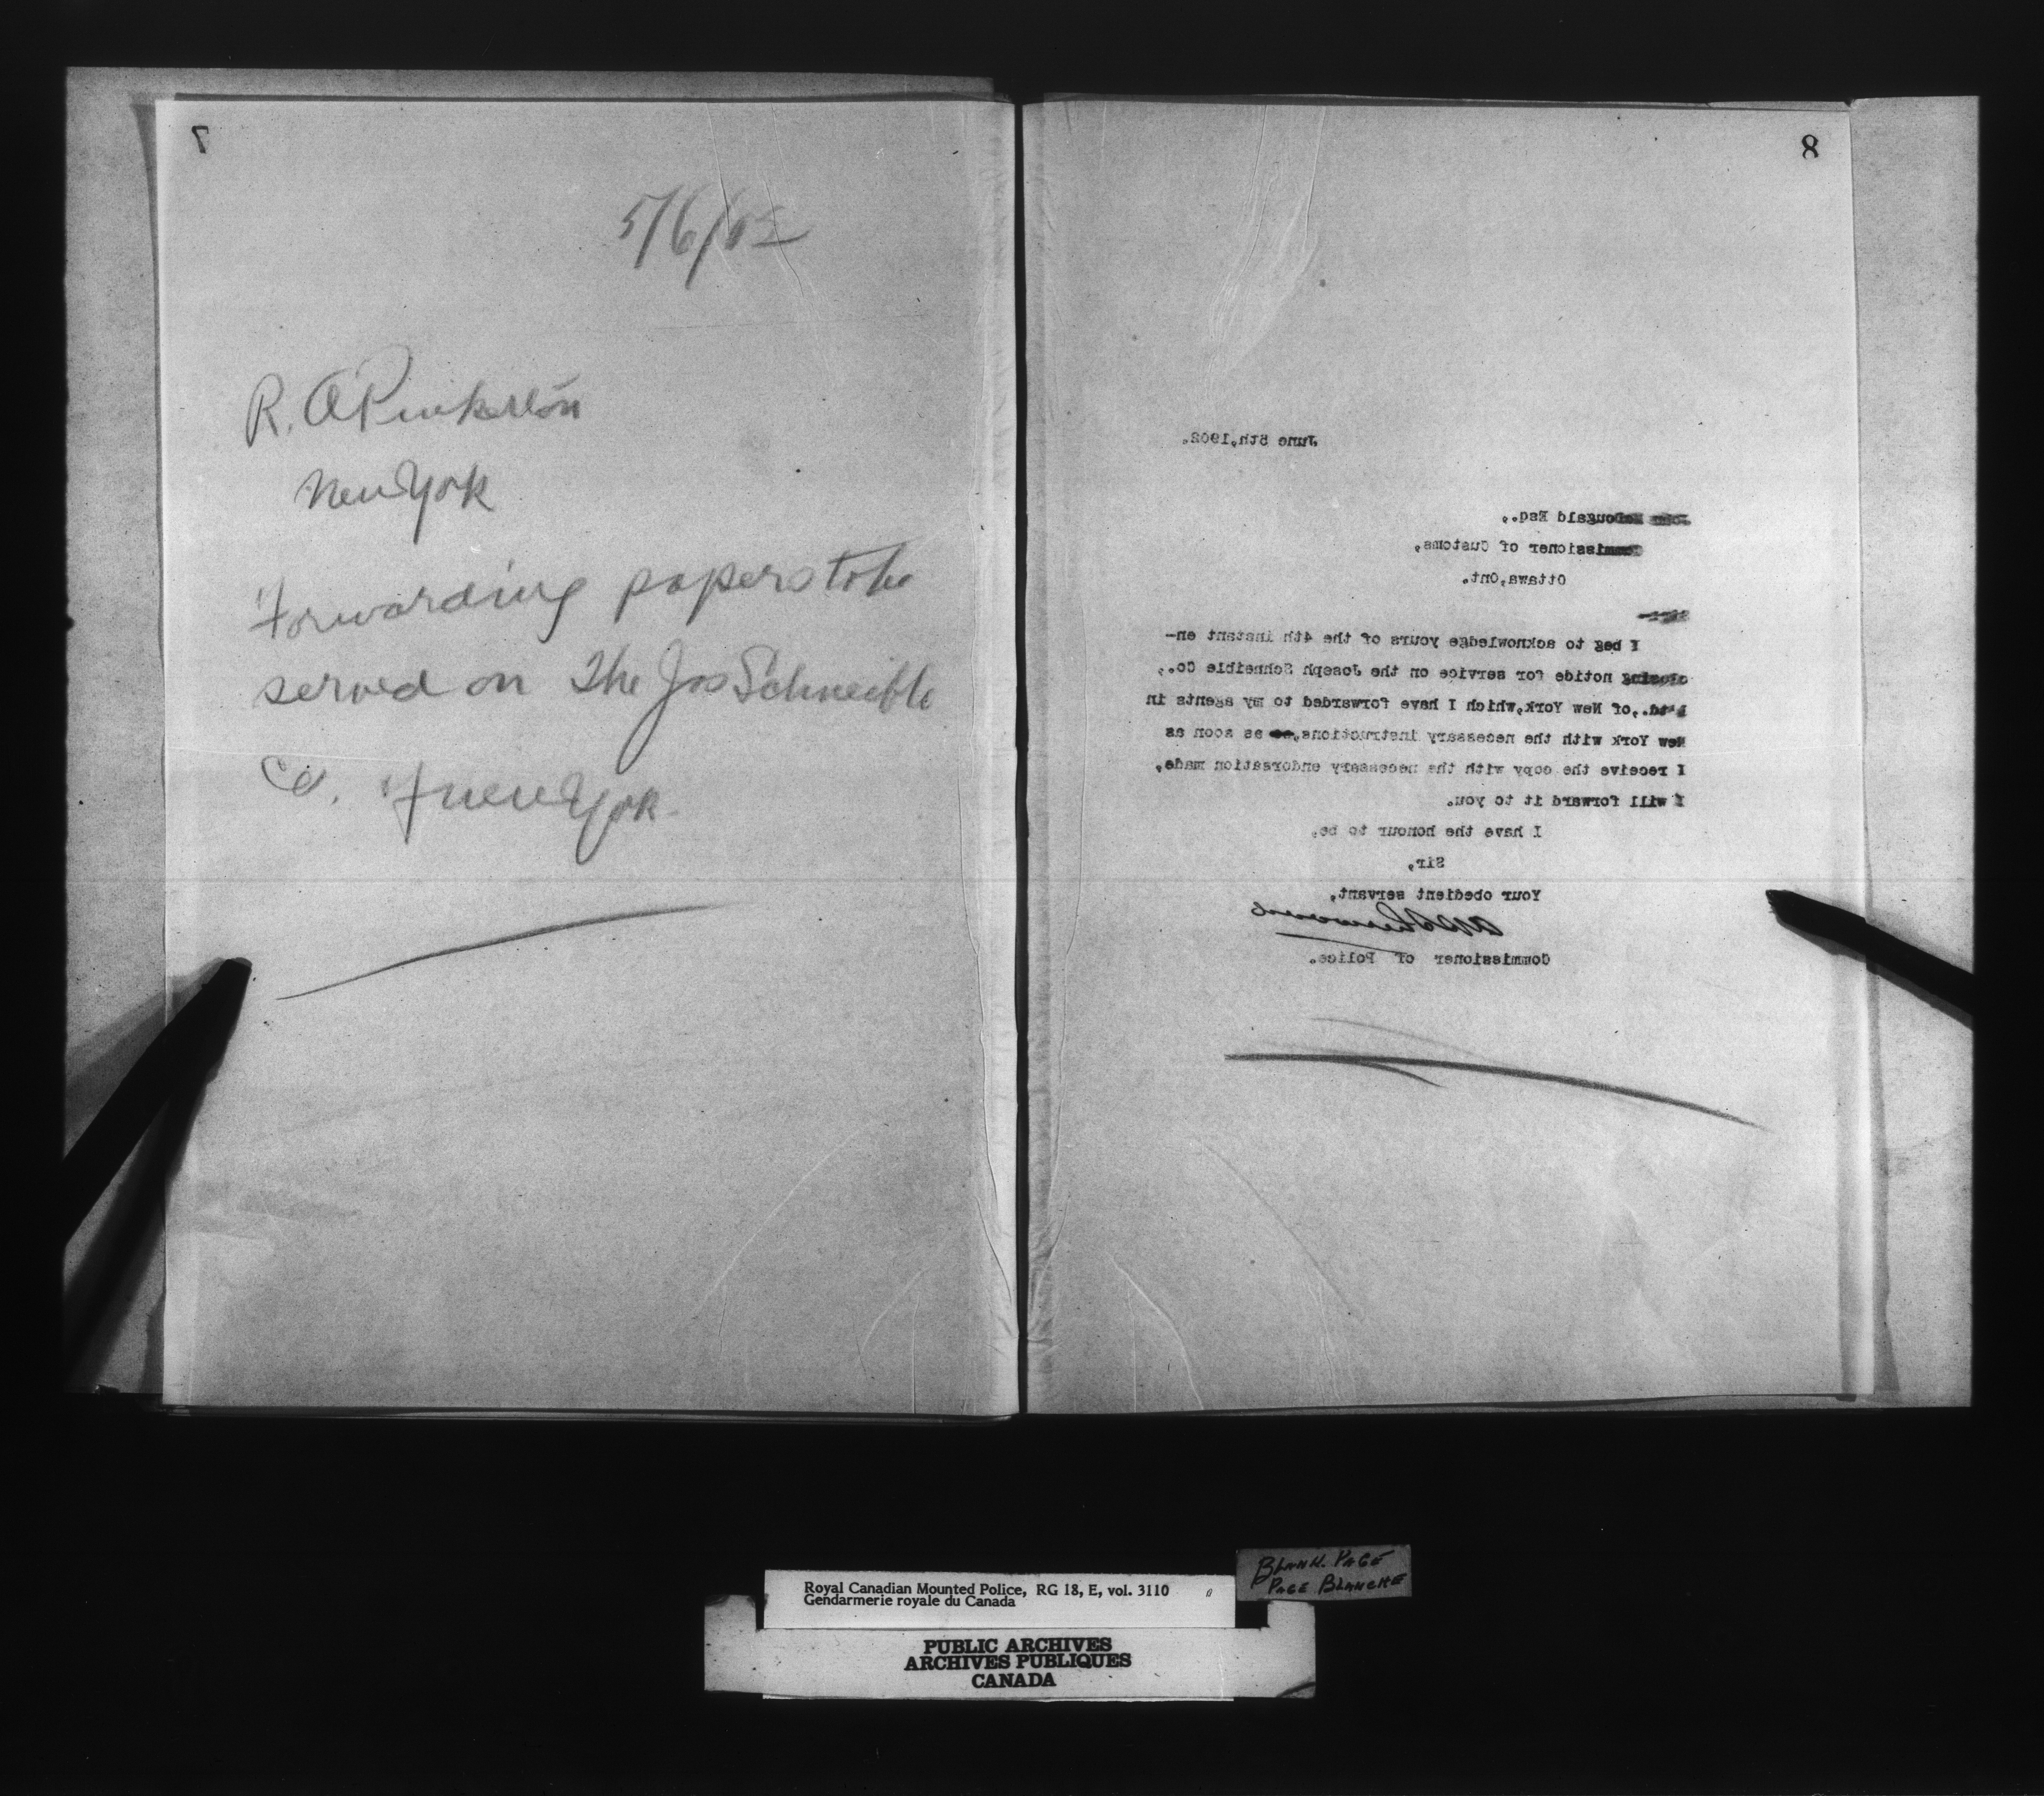 7
5/6/02
R. A Pinkerton
New York
Forwarding papers to be
served on The Jos Schneible
Co. of New York
8
June 5th,1902.
John McDougald Esq.,
Commissioner of Customs,
Ottawa,Ont.
Sir:-
I beg to acknowledge yours of the 4th instant en-
closing notide for service on the Joseph Schneible Co.,
Ltd.,of New York,which I have forwarded to my agents in
New York with the necessary instructions, as soon as
I receive the copy with the necessary endorsation made,
I will forward it to you.
I have the honour to be,
Sir,
Your obedient servant,
Commissioner of Police.
Royal Canadian Mounted Police, RG 18, E, vol. 3110
Gendarmerie royale du Canada
BLANK PAGE
PAGE BLANCHE
PUBLIC ARCHIVES
ARCHIVES PUBLIQUES
CANADA